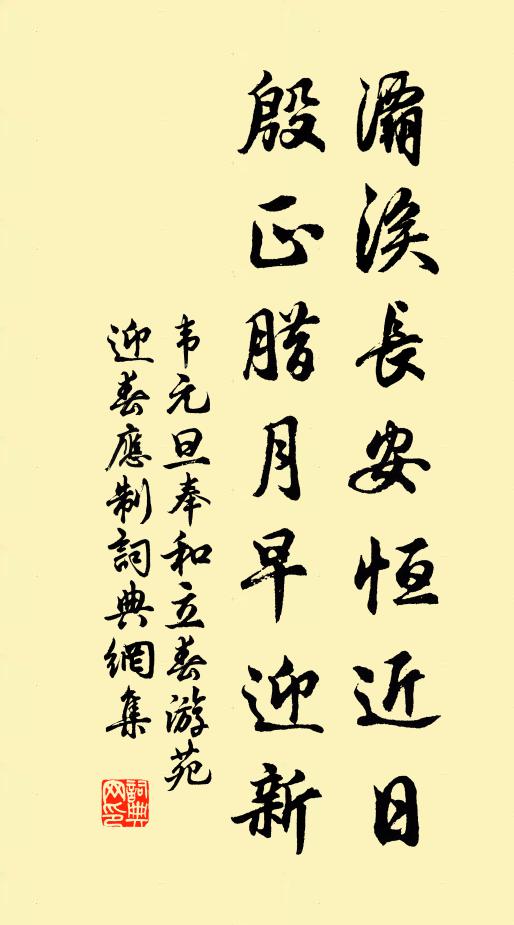 灞涘長安恒近日
殷正腊月早迎新
韦元旦奉和立春游苑
迎春應制詞典網集
詞典网印